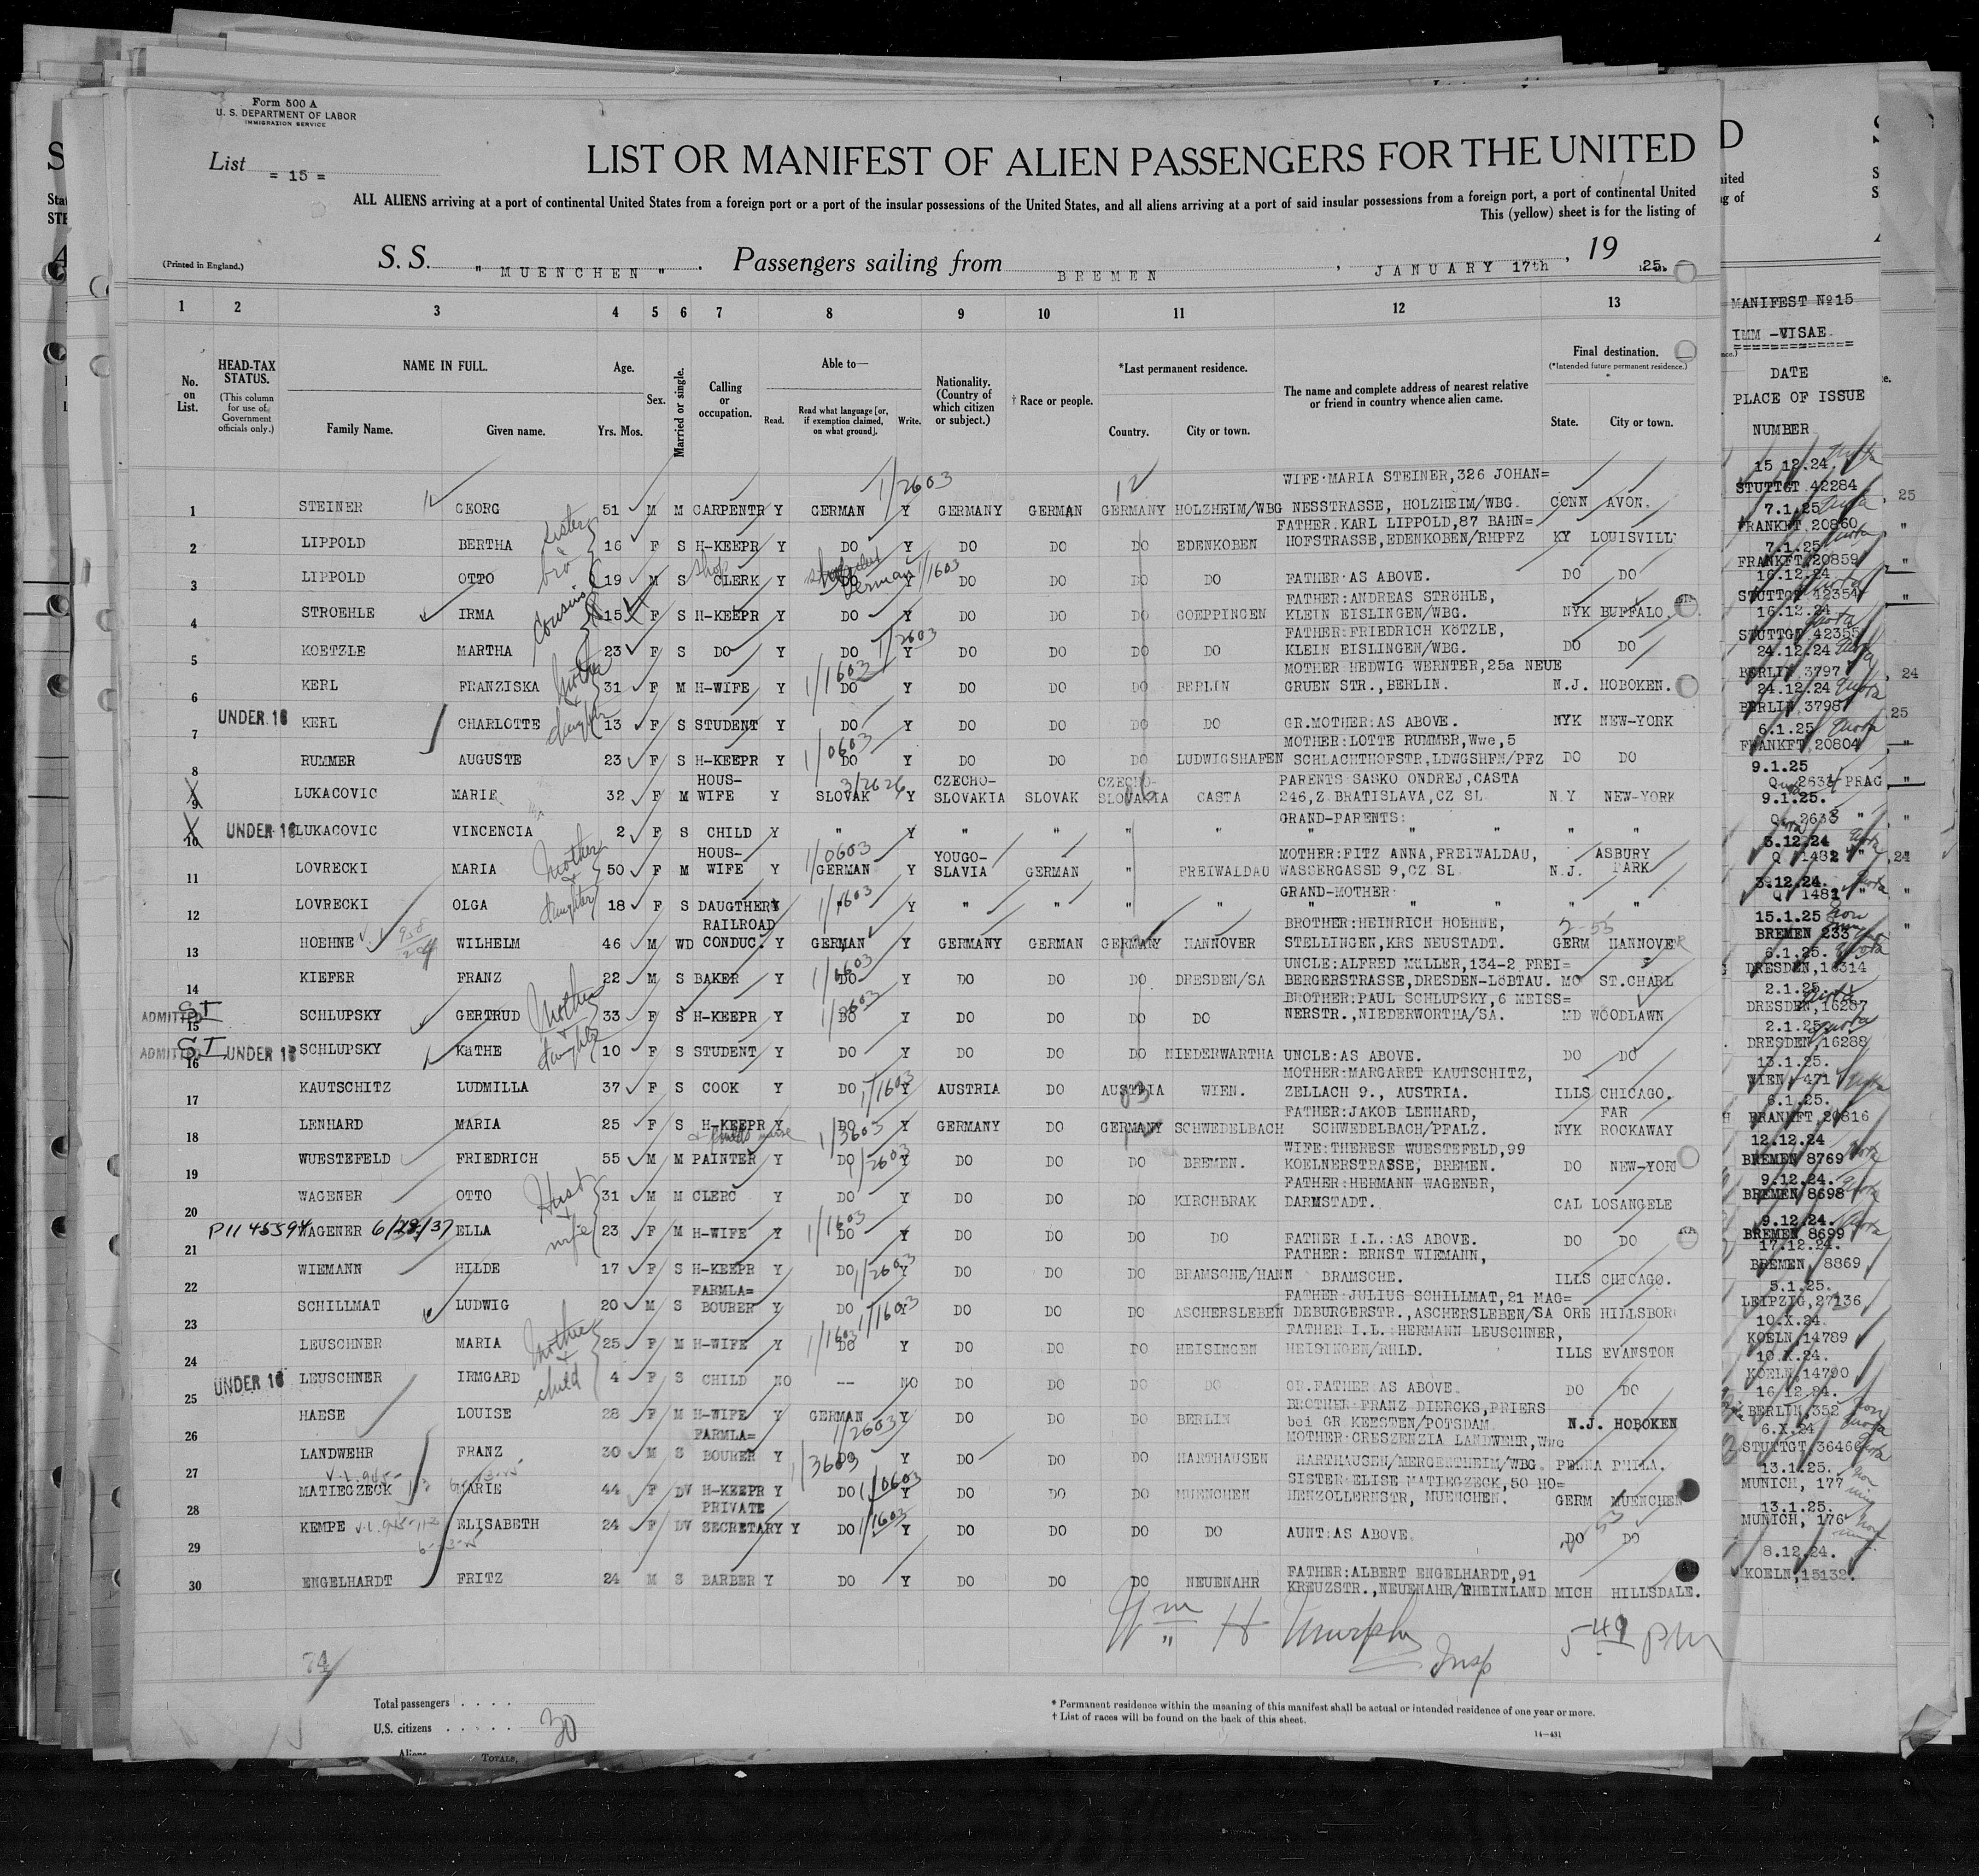 Form 500 A
U. S. DEPARTMENT OF LABOR
IMMIGRATION SERVICE
List = 15 =
LIST OR MANIFEST OF ALIEN PASSENGERS FOR THE UNITED
ALL ALIENS arriving at a port of continental United States from a foreign port or a port of the insular possessions of the United States, and all aliens arriving at a port of said insular possessions from a foreign port, a port of continental United
This (yellow) sheet is for the listing of
(Printed in England.)
S. S. " MUENCHEN " . Passengers sailing from BREMEN , JANUARY 17th , 19 25.
1 2 3 4 5 6 7 8 9 10 11 12 13
No. on List.
HEAD-TAX STATUS.
(This column for use of Government officials only.)
NAME IN FULL.
Family Name. Given name.
Age.
Yrs. Mos.
Sex.
Married or single.
Calling or occupation.
Able to—
Read. Read what language [or, if exemption claimed, on what ground]. Write.
Nationality. (Country of which citizen or subject.)
† Race or people.
*Last permanent residence.
Country. City or town.
The name and complete address of nearest relative or friend in country whence alien came.
Final destination.
(*Intended future permanent residence.)
State. City or town.
MANIFEST Nº15
IMM -VISAE
DATE
PLACE OF ISSUE
NUMBER
1/2603
WIFE:MARIA STEINER,326 JOHAN= 15 12.24.
1 STEINER GEORG 51 M M CARPENTR Y GERMAN Y GERMANY GERMAN GERMANY HOLZHEIM/WBG NESSTRASSE, HOLZHEIM/WBG. CONN AVON. STUTTGT 42284
sister & bro
FATHER.KARL LIPPOLD,87 BAHN= 7.1.25
2 LIPPOLD BERTHA 16 F S H-KEEPR Y DO Y DO DO DO EDENKOBEN HOFSTRASSE,EDENKOBEN/RHPFZ KY LOUISVILL FRANKFT 20860
shop German 1/1603 7.1.25
3 LIPPOLD OTTO 19 M S CLERK Y DO Y DO DO DO DO FATHER:AS ABOVE. DO DO FRANKFT 20859
cousins
FATHER:ANDREAS STRÖHLE, 16.12.24
4 STROEHLE IRMA 15 F S H-KEEPR Y DO Y DO DO DO GOEPPINGEN KLEIN EISLINGEN/WBG. NYK BUFFALO. STUTTGT 42354
1/2603
FATHER:FRIEDRICH KÖTZLE, 16.12.24
5 KOETZLE MARTHA 23 F S DO Y DO Y DO DO DO DO KLEIN EISLINGEN/WBG. DO DO STUTTGT 42355
mother & daughter 1/1603
MOTHER HEDWIG WERNTER,25a NEUE 24.12.24
6 KERL FRANZISKA 31 F M H-WIFE Y DO Y DO DO DO BERLIN GRUEN STR.,BERLIN. N.J. HOBOKEN. BERLIN 3797
24.12.24
7 UNDER 16 KERL CHARLOTTE 13 F S STUDENT Y DO Y DO DO DO DO GR.MOTHER:AS ABOVE. NYK NEW-YORK BERLIN 3798
1/0603
MOTHER:LOTTE RUMMER,Wwe,5 6.1.25
8 RUMMER AUGUSTE 23 F S H-KEEPR Y DO Y DO DO DO LUDWIGSHAFEN SCHLACHTHOFSTR,LDWGSHFN/PFZ DO DO FRANKFT 20804
HOUS- 3/2626 CZECHO- CZECHO- PARENTS SASKO ONDREJ,CASTA 9.1.25
9 LUKACOVIC MARIE 32 F M WIFE Y SLOVAK Y SLOVAKIA SLOVAK SLOVAKIA CASTA 246,Z BRATISLAVA,CZ SL N Y NEW-YORK 2634 PRAG
GRAND-PARENTS: 9.1.25.
10 UNDER 16 LUKACOVIC VINCENCIA 2 F S CHILD Y " Y " " " " " " " " " 2633 "
mother & daughter
HOUS- 1/0603 YOUGO- MOTHER:FITZ ANNA,FREIWALDAU, ASBURY 3.12.24
11 LOVRECKI MARIA 50 F M WIFE Y GERMAN Y SLAVIA GERMAN " FREIWALDAU WASSERGASSE 9,CZ SL N.J. PARK Q 1482 "
1/1603 GRAND-MOTHER: 3.12.24.
12 LOVRECKI OLGA 18 F S DAUGTHER Y " Y " " " " " " " " " Q 1481 "
RAILROAD BROTHER:HEINRICH HOEHNE, 2-53 15.1.25
13 HOEHNE WILHELM 46 M WD CONDUC. Y GERMAN Y GERMANY GERMAN GERMANY HANNOVER STELLINGEN,KRS NEUSTADT. GERM HANNOVER BREMEN 233
1/0603 UNCLE:ALFRED MüLLER,134-2 FREI= 6.1.25.
14 KIEFER FRANZ 22 M S BAKER Y DO Y DO DO DO DRESDEN/SA BERGERSTRASSE,DRESDEN-LöBTAU. MO ST.CHARL DRESDEN,16314
mother & daughter
BROTHER:PAUL SCHLUPSKY,6 MEISS= 2.1.25.
15 ADMITTED SI SCHLUPSKY GERTRUD 33 F S H-KEEPR Y DO Y DO DO DO DO NERSTR.,NIEDERWORTHA/SA. MD WOODLAWN DRESDEN,16287
2.1.25.
16 ADMITTED SI UNDER 16 SCHLUPSKY KäTHE 10 F S STUDENT Y DO Y DO DO DO NIEDERWARTHA UNCLE:AS ABOVE. DO DO DRESDEN,16288
1/1603 MOTHER:MARGARET KAUTSCHITZ, 13.1.25.
17 KAUTSCHITZ LUDMILLA 37 F S COOK Y DO Y AUSTRIA DO AUSTRIA WIEN. ZELLACH 9., AUSTRIA. ILLS CHICAGO. WIEN 471
FATHER:JAKOB LENHARD, FAR 6.1.25.
18 LENHARD MARIA 25 F S H-KEEPR Y DO Y GERMANY DO GERMANY SCHWEDELBACH SCHWEDELBACH/PFALZ. NYK ROCKAWAY FRANKFT,20816
1/3603 WIFE:THERESE WUESTEFELD,99 12.12.24
19 WUESTEFELD FRIEDRICH 55 M M PAINTER Y DO Y DO DO DO BREMEN. KOELNERSTRASSE, BREMEN. DO NEW-YORK BREMEN 8769
1/2603
Hust & wife
FATHER:HERMANN WAGENER, 9.12.24.
20 WAGENER OTTO 31 M M CLERC Y DO Y DO DO DO KIRCHBRAK DARMSTADT. CAL LOSANGELE BREMEN 8698
1/1603 9.12.24.
21 P1145594 WAGENER 6/28/37 ELLA 23 F M H-WIFE Y DO Y DO DO DO DO FATHER I.L.:AS ABOVE. DO DO BREMEN 8699
FATHER: ERNST WIEMANN, 17.12.24.
22 WIEMANN HILDE 17 F S H-KEEPR Y DO 1/2603 Y DO DO DO BRAMSCHE/HANN BRAMSCHE. ILLS CHICAGO. BREMEN, 8869
FARMLA= FATHER:JULIUS SCHILLMAT,21 MAG= 5.1.25.
23 SCHILLMAT LUDWIG 20 M S BOURER Y DO 1/1603 Y DO DO DO ASCHERSLEBEN DEBURGERSTR.,ASCHERSLEBEN/SA ORE HILLSBOR LEIPZIG,27136
mother & child
1/1603 FATHER I.L.:HERMANN LEUSCHNER, 10.X.24
24 LEUSCHNER MARIA 25 F M H-WIFE Y DO Y DO DO DO HEISINGEN HEISINGEN/RHLD. ILLS EVANSTON KOELN,14789
10.X.24.
25 UNDER 16 LEUSCHNER IRMGARD 4 F S CHILD NO -- NO DO DO DO DO GR.FATHER AS ABOVE. DO DO KOELN,14790
BROTHER FRANZ DIERCKS,PRIERS 16.12.24.
26 HAESE LOUISE 28 F M H-WIFE Y GERMAN Y DO DO DO BERLIN bei GR KEESTEN/POTSDAM. N.J. HOBOKEN BERLIN,352
FARMLA= 1/2603 MOTHER:CRESZENZIA LANDWEHR,Wwe 6.X.24
27 LANDWEHR FRANZ 30 M S BOURER Y DO Y DO DO DO HARTHAUSEN HARTHAUSEN/MERGENTHEIM/WBG. PENNA PHILA. STUTTGT,36466
1/3603 SISTER:ELISE MATIEGZECK,50 HO= 13.1.25.
28 MATIEGZECK MARIE 44 F DV H-KEEPR Y DO 1/0603 Y DO DO DO MUENCHEN HENZOLLERNSTR, MUENCHEN. GERM MUENCHEN MUNICH, 177
PRIVATE 13.1.25.
29 KEMPE ELISABETH 24 F DV SECRETARY Y DO 1/1603 Y DO DO DO DO AUNT:AS ABOVE. DO DO MUNICH, 176
FATHER:ALBERT ENGELHARDT,91 8.12.24.
30 ENGELHARDT FRITZ 24 M S BARBER Y DO Y DO DO DO NEUENAHR KREUZSTR.,NEUENAHR/RHEINLAND MICH HILLSDALE. KOELN,15132.
Wm H Murphy Insp 5 49 pm
74
Total passengers . . . .
U.S. citizens . . . . . 30
Aliens
TOTALS,
* Permanent residence within the meaning of this manifest shall be actual or intended residence of one year or more.
† List of races will be found on the back of this sheet.
14—431